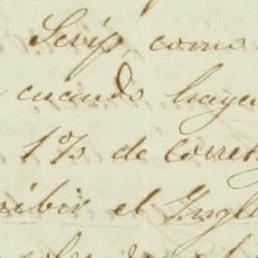 Scrip, como
cuando haya
1% de corret
ribir el Ingl